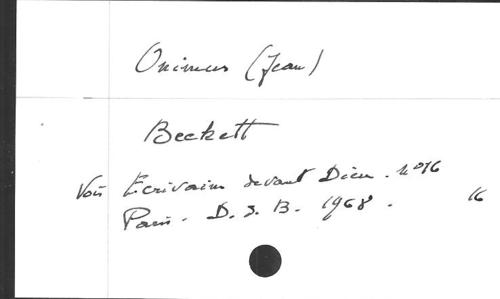 Onimus (Jean)
Beckett
Voir Ecrivains devant Dieu. n°16
Paris. D. d. B. 1968. 16